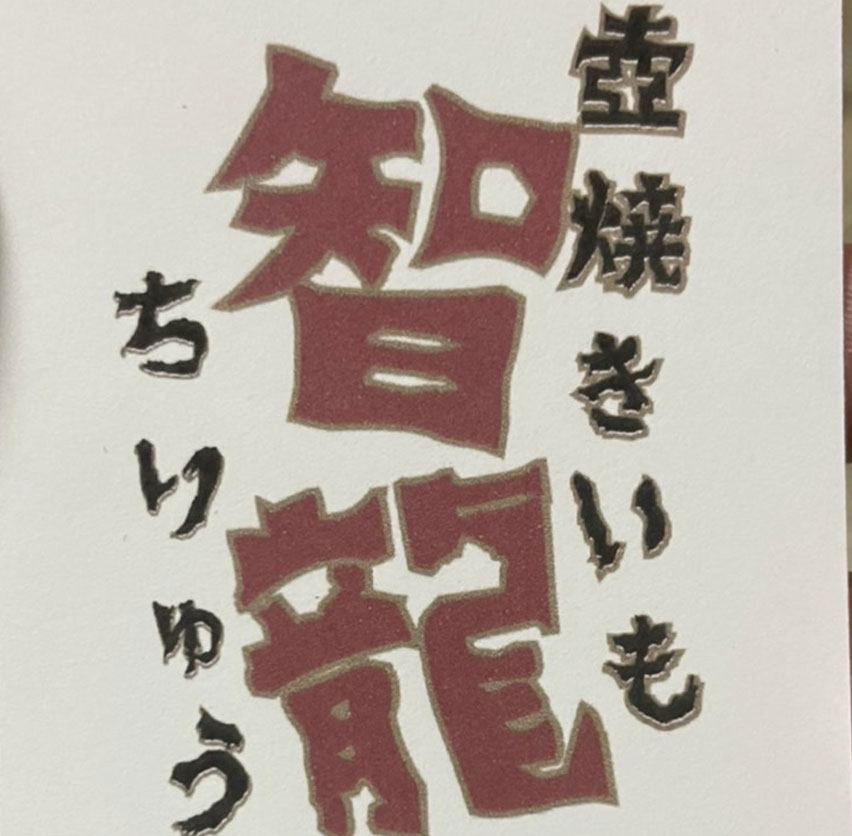 壺焼きいも
智龍
ちりゅう